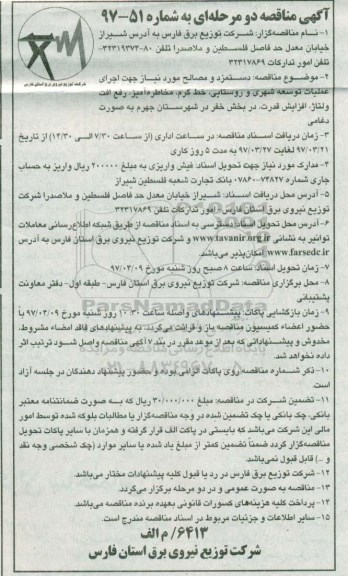 آگهی مناقصه دو مرحله‌ای به شماره ۵۱-۹۷
شرکت توزیع نیروی برق استان فارس
۱-نـام مناقصه‌گزار: شـرکت توزیع برق فارس به آدرس شـیراز
خیابان معدل حد فاصل فلسـطین و ملاصدرا تلفن ۸۰-۳۲۳۱۹۳۷۴
تلفن امور تدارکات ۳۲۳۱۷۸۶۹
۲-موضـوع مناقصه: دسـتمزد و مصالح مورد نیـاز جهت اجرای
عملیات توسعه شهری و روستایی، خط گرم، مخاطره‌آمیز، رفع افت
ولتاژ، افزایش قدرت، در بخش خفر در شهرسـتان جهرم به صورت
دغامی
۳-زمان دریافت اسـناد مناقصه: در سـاعت اداری (از ساعت ۷/۳۰ الی ۱۴/۳۰) از تاریخ
۹۷/۰۳/۲۱ لغایت ۹۷/۰۳/۲۷ به مدت ۵ روز کاری
۴-مدارک مورد نیاز جهت تحویل اسناد: فیش واریزی به مبلغ ۲۰۰۰۰۰ ریال واریز به حساب
جاری شماره ۰۷۸۶۰۰۷۴۸۲۷ بانک تجارت شعبه فلسطین شیراز
۵-آدرس محل دریافت اسـناد: شـیراز خیابان معدل حد فاصل فلسطین و ملاصدرا شرکت
توزیع نیروی برق استان فارس - امور تدارکات تلفن ۳۲۳۱۷۸۶۹
۶-آدرس محل تحویل اسناد: دسترسی به اسناد مناقصه از طریق شبکه اطلاع‌رسانی معاملات
توانیر به نشانی www.tavanir.org.ir و شرکت توزیع نیروی برق استان فارس به آدرس
www.farsedc.ir امکان‌پذیر می‌باشد.
۷-زمان تحویل اسناد: ساعت ۸ صبح روز شنبه مورخ ۹۷/۰۴/۰۹
۸-محل برگزاری مناقصه: شرکت توزیع نیروی برق استان فارس- طبقه اول- دفتر معاونت
پشتیبانی
۹-زمان بازگشایی پاکات: پیشنهادهای واصله ساعت ۱۰:۳۰ روز شنبه مورخ ۹۷/۰۴/۰۹ با
حضور اعضاء کمیسیون مناقصه باز و قرائت می‌گردد. به پیشنهادهای فاقد امضاء مشروط،
مخدوش و پیشنهاداتی که بعد از موعد مقرر در بند ۷ آگهی مناقصه واصل شـود ترتیب اثر
داده نخواهد شد.
۱۰-ذکر شـماره مناقصه روی پاکات الزامی بوده و حضور پیشنهاد دهندگان در جلسه آزاد
است.
۱۱-تضمین شـرکت در مناقصه: مبلغ ۳۰/۰۰۰/۰۰۰ ریال که به صورت ضمانتنامه معتبر
بانکی، چک بانکی یا چک تضمین شده در وجه مناقصه‌گزار یا مطالبات بلوکه شده توسط امور
مالی این شرکت می‌باشد که بایستی در پاکت الف قرار گرفته و همزمان با سایر پاکات تحویل
مناقصه‌گزار گردد ضمناً تضمین کمتر از مبلغ یاد شده یا سایر موارد (چک شخصی وجه نقد
و ...) قابل قبول نمی‌باشد.
۱۲-شرکت توزیع برق فارس در رد یا قبول کلیه پیشنهادات مختار می‌باشد.
۱۳-مناقصه به صورت عمومی و در دو مرحله برگزار می‌گردد.
۱۴-پرداخت کلیه هزینه‌های کسورات قانونی بعهده برنده مناقصه می‌باشد.
۱۵-سایر اطلاعات و جزئیات مربوط در اسناد مناقصه مندرج است.
۶۴۱۳/ م الف
شرکت توزیع نیروی برق استان فارس